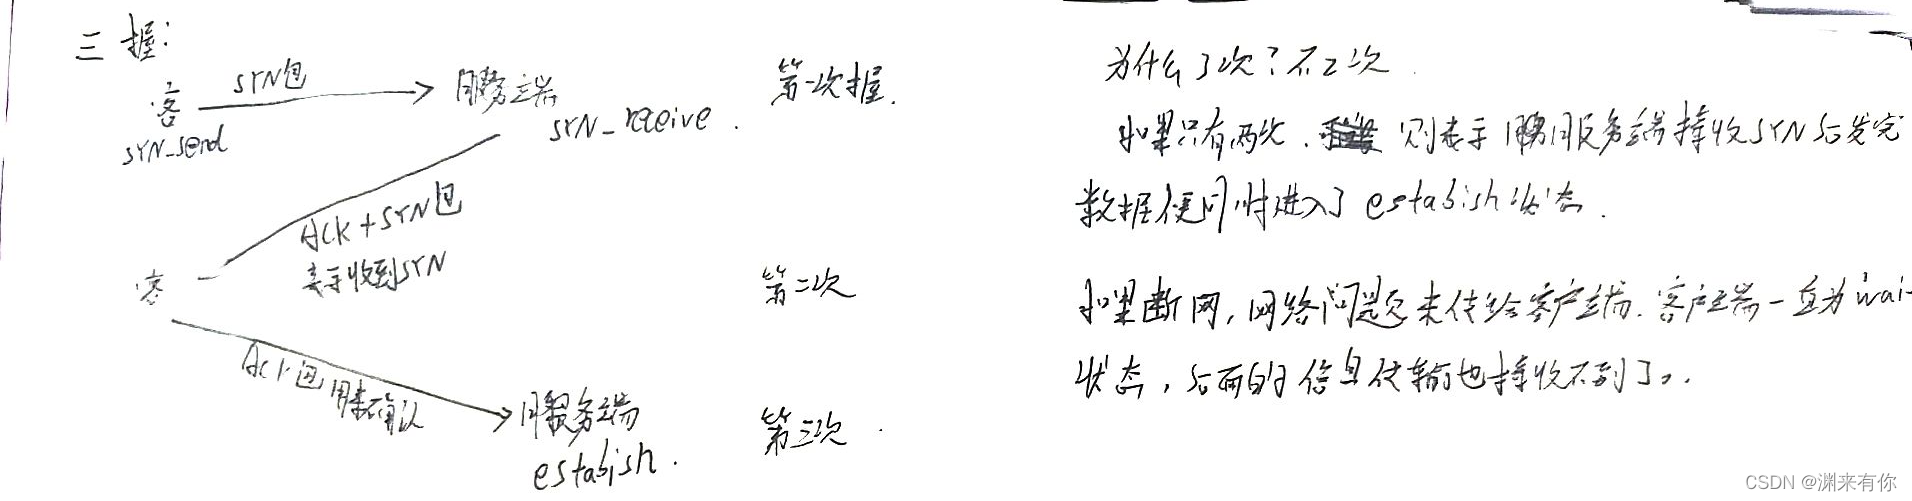 三握:
SYN包
客 服务端 第一次握.
SYN_send SYN_receive.
ACK+SYN包
表示收到SYN
客 第二次
ACK包 用来确认
服务端 第三次.
estabish.
为什么3次?不2次.
如果只有两次. 则表示 服务端接收SYN后发完
数据便同时进入了 estabish状态.
如果断网,网络问题未传给客户端.客户端一直为wai
状态,后面的信息传输也接收不到了。
CSDN @渊来有你